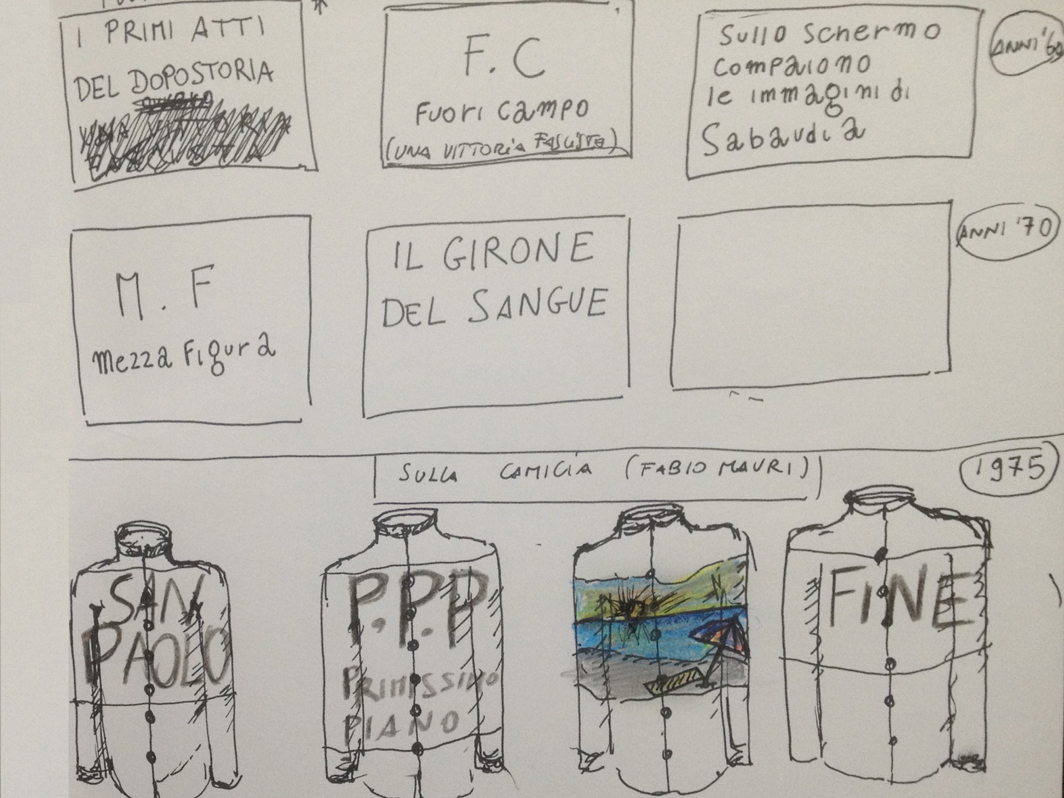 I PRIMI ATTI
DEL DOPOSTORIA
F.C
FUORI CAMPO
(UNA VITTORIA FASCISTA)
Sullo schermo
compaiono
le immagini di
Sabaudia
ANNI '60
M.F
mezza FIgura
IL GIRONE
DEL SANGUE
ANNI '70
SULLA CAMICIA (FABIO MAURI)
1975
SAN
PAOLO
P.P.P
PRIMISSIMO
PIANO
FINE